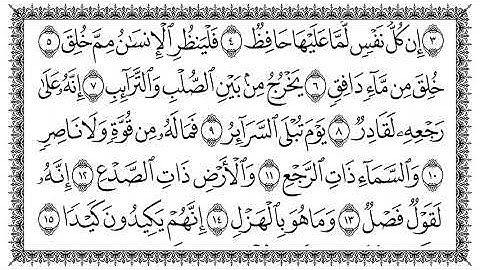 ٣ إِن كُلُّ نَفْسٍ لَّمَّا عَلَيْهَا حَافِظٌ ٤ فَلْيَنظُرِ ٱلْإِنسَٰنُ مِمَّ خُلِقَ ٥
خُلِقَ مِن مَّآءٍ دَافِقٍ ٦ يَخْرُجُ مِنۢ بَيْنِ ٱلصُّلْبِ وَٱلتَّرَآئِبِ ٧ إِنَّهُۥ عَلَىٰ
رَجْعِهِۦ لَقَادِرٌ ٨ يَوْمَ تُبْلَى ٱلسَّرَآئِرُ ٩ فَمَا لَهُۥ مِن قُوَّةٍ وَلَا نَاصِرٍ
١٠ وَٱلسَّمَآءِ ذَاتِ ٱلرَّجْعِ ١١ وَٱلْأَرْضِ ذَاتِ ٱلصَّدْعِ ١٢ إِنَّهُۥ
لَقَوْلٌ فَصْلٌ ١٣ وَمَا هُوَ بِٱلْهَزْلِ ١٤ إِنَّهُمْ يَكِيدُونَ كَيْدًا ١٥